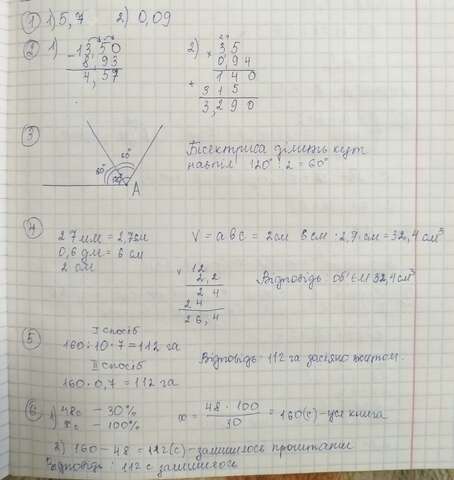 1 1) 5,7 2) 0,09
2 1) -13,50
8,93
4,57
2) × 3,5
0,94
+ 140
315
3,290
3
60°
60°
A
Бісектриса ділить кут
навпіл 120° : 2 = 60°
4 27 мм = 2,7 см
0,6 дм = 6 см
2 см
V = abc = 2 см 6 см · 2,7 см = 32,4 см³
12
2,2
24
24
26,4
Відповідь: об'єм 32,4 см³
5 I спосіб
160 : 10 · 7 = 112 га
II спосіб
160 · 0,7 = 112 га
Відповідь: 112 га засіяно житом.
6 1) 48с – 30%
xс – 100%
x = 48 · 100 / 30 = 160(с) - уся книга
2) 160 – 48 = 112(с) - залишилось прочитати
Відповідь: 112 с залишилось